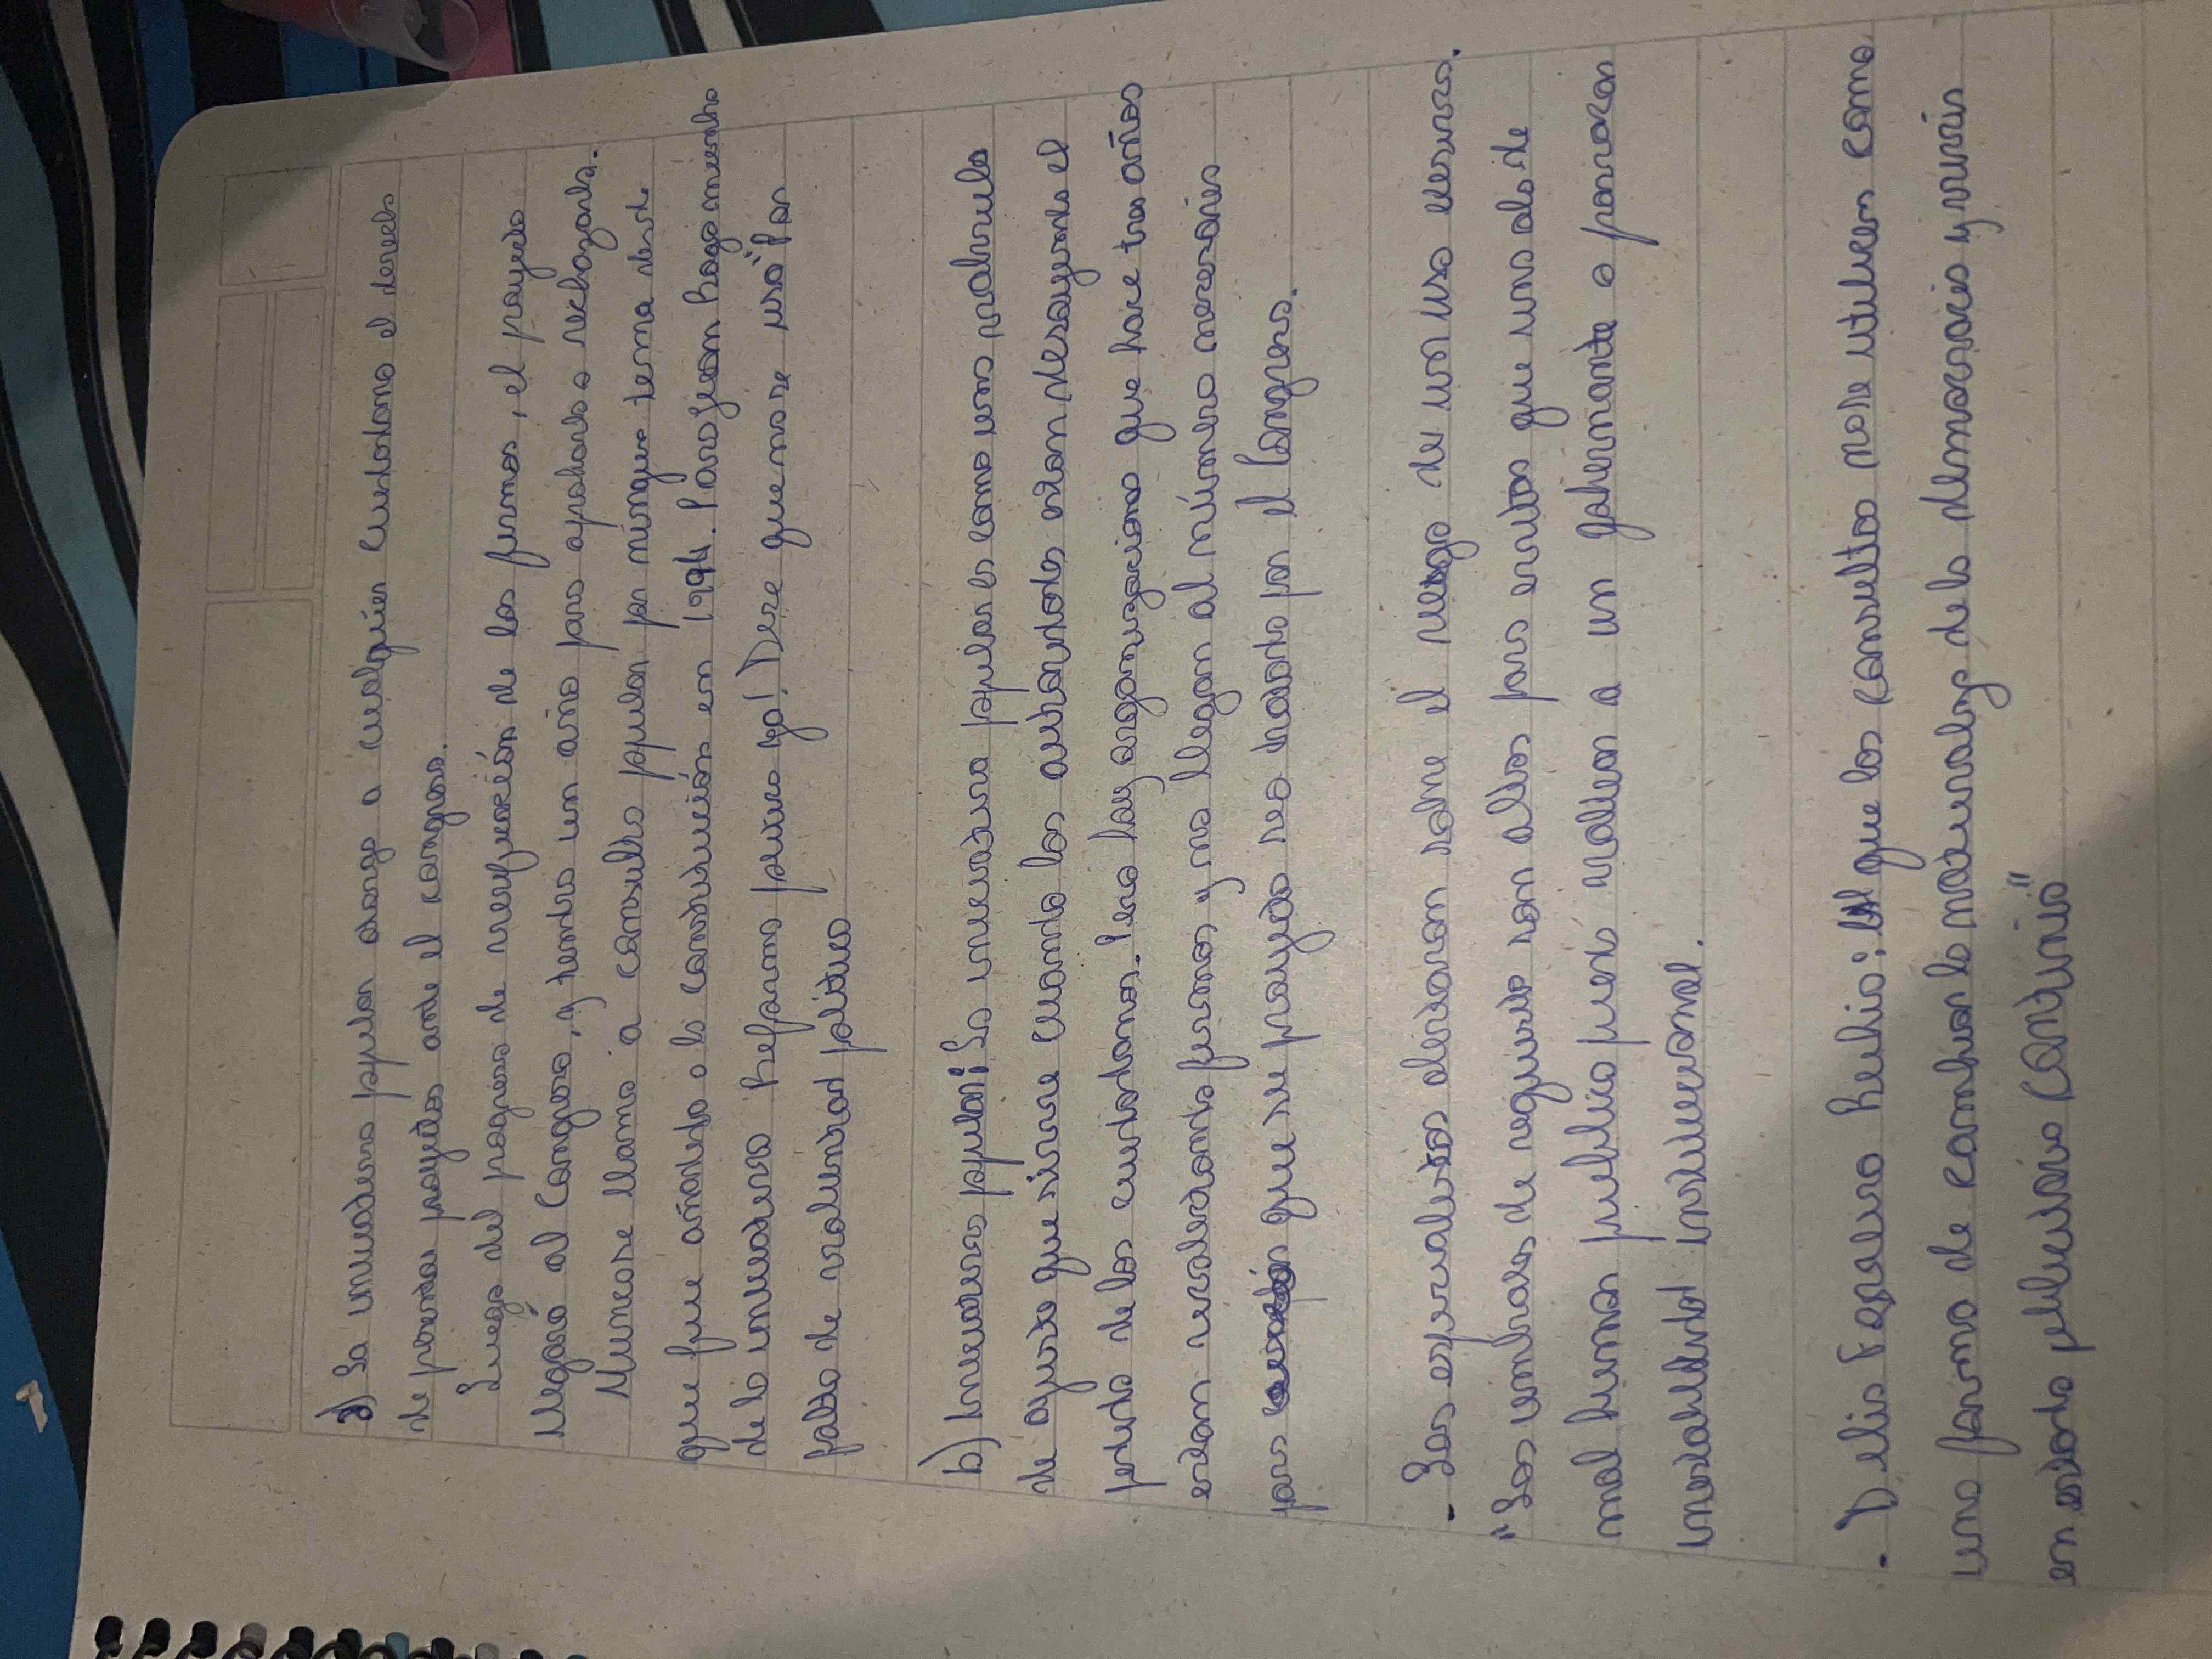 a) La iniciativa popular otorga a cualquier ciudadano el derecho
de presentar proyectos ante el congreso.
Luego del progreso de verificación de las firmas, el proyecto
llegará al Congreso, y tendrá un año para aprobarlo o rechazarlo.
Nunca se llamo a consulta popular por ningun tema desde
que fue añadido a la constitución en 1994. Para Juan
de la iniciativa Reforma politica ya! Dice que no se usó "Por
falta de voluntad politica
b) Iniciativa popular: La iniciativa popular es como una
de ajuste que sirve cuando las autoridades estan desoyendo el
pedido de los ciudadanos. Pero hay organizaciones que hace tres años
estan recolectando firmas y no llegan al número necesario
para que su proyecto sea tratado por el Congreso.
- Los especialistas alertaron sobre el riesgo de un uso excesivo.
"Los umbrales de requisito son altos para evitar que una ola de
mal humor publico pueda voltear a un gobernante o provocar
inestabilidad institucional.
- Delia Ferreira Rubio: que las consultas no se utilicen como
una forma de cambiar la naturaleza de la democracia y vivir
en estado plebiscitario continuo"